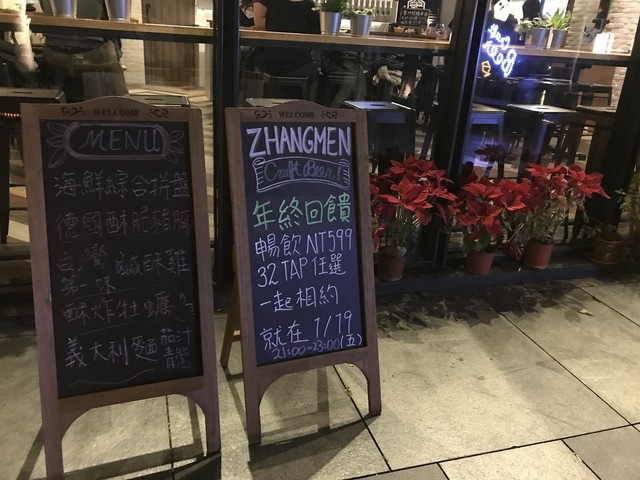 WELCOME
MENU
海鮮綜合拼盤
德國酥脆豬腳
台灣第一味 鹹酥雞
酥炸牡蠣
義大利麵 茄汁 青醬
WELCOME
ZHANGMEN
Craft Beer!
年終回饋
暢飲NT599
32 TAP 任選
一起相約
就在 1/19
21:00~23:00(五)